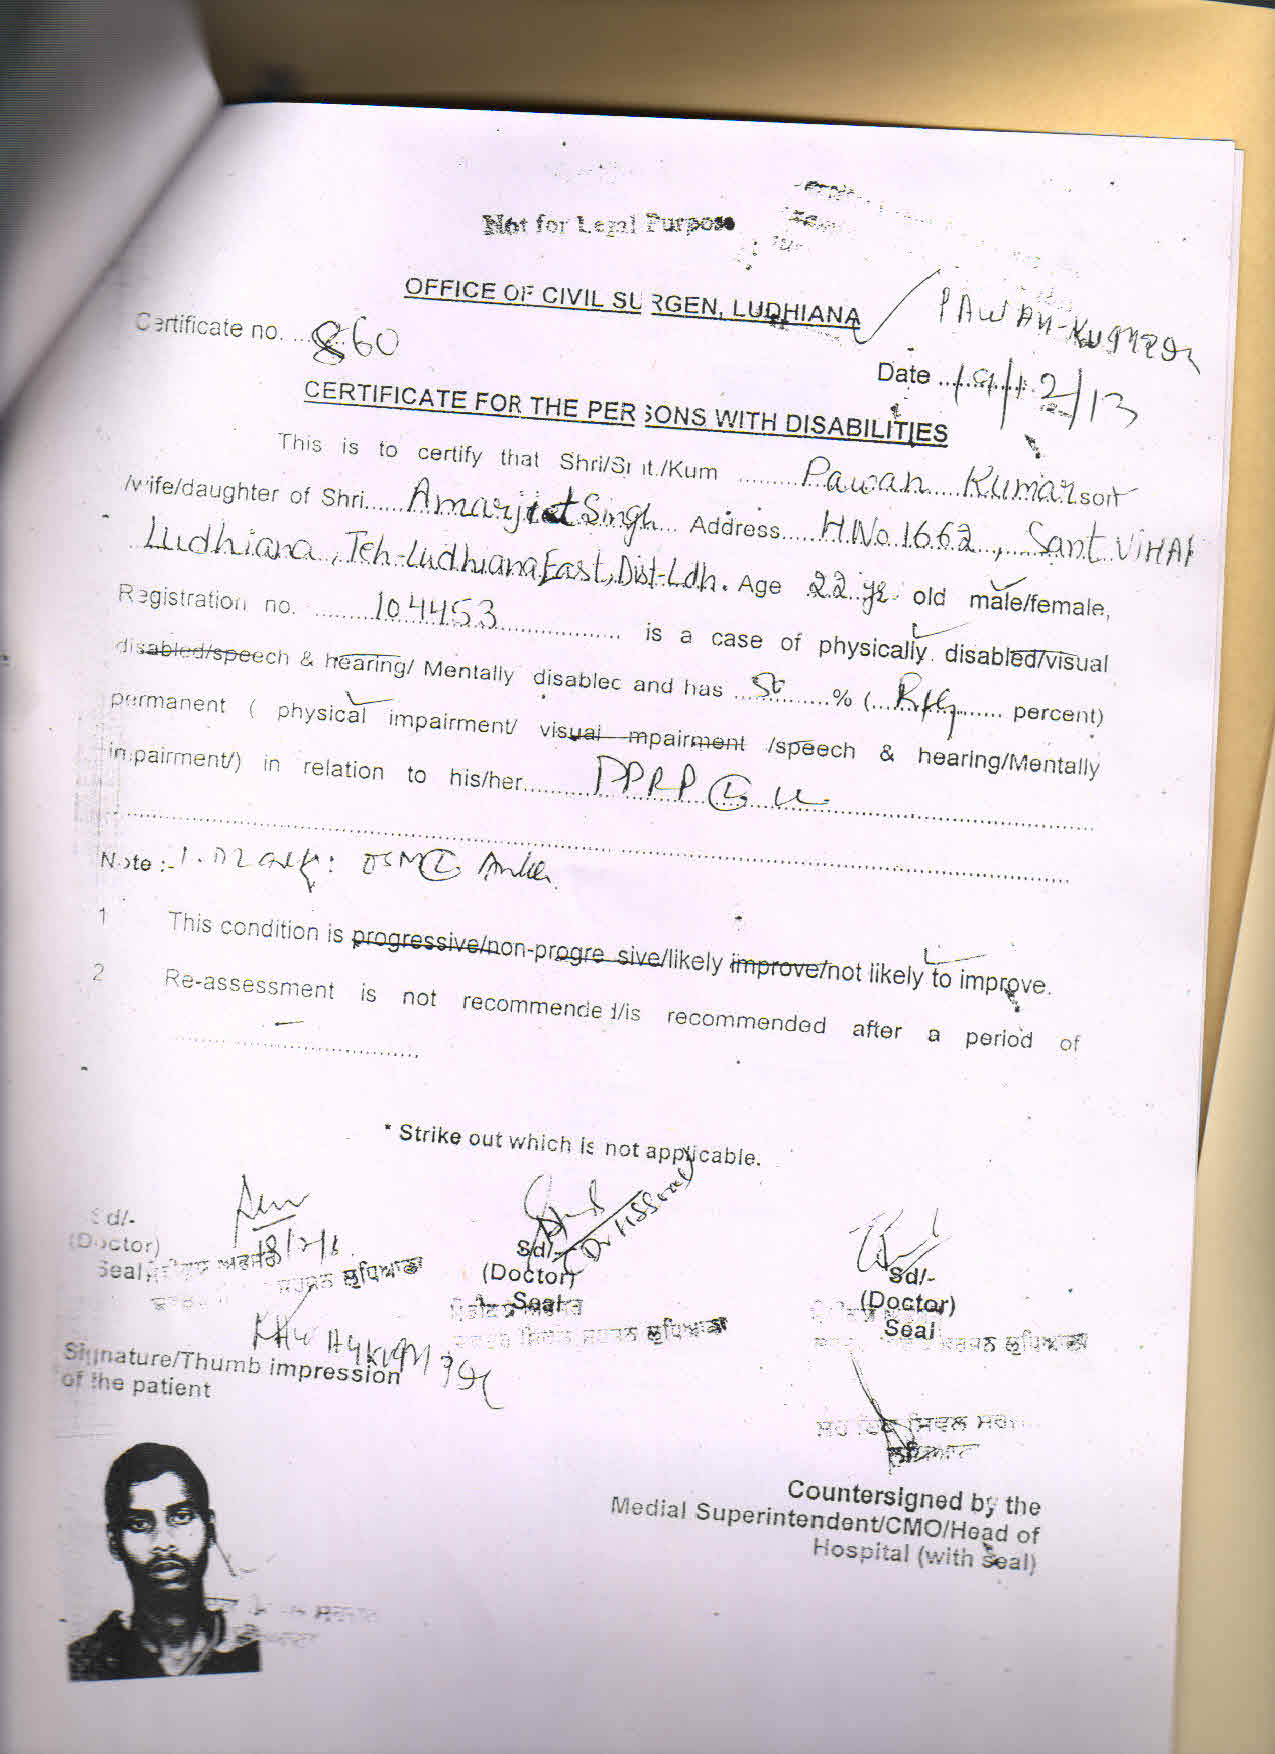 Not for Legal Purpose
OFFICE OF CIVIL SURGEN, LUDHIANA
PAWAN-KUMAR
Certificate no. ...860
Date ...18/12/13
CERTIFICATE FOR THE PERSONS WITH DISABILITIES
This is to certify that Shri/Smt./Kum ......... Pawan Kumar son
/wife/daughter of Shri...... Amarjeet Singh ... Address..... H.No. 1662, Sant VIHAR
Ludhiana, Teh-Ludhiana East, Dist-Ldh. Age 22 yr old male/female,
Registration no. ........ 104453 ................ is a case of physically disabled/visual
disabled/speech & hearing/ Mentally disabled and has ............% (............ percent)
permanent ( physical impairment/ visual impairment /speech & hearing/Mentally
impairment/) in relation to his/her........... PPRP (L)
Note :-
1 This condition is progressive/non-progressive/likely improve/not likely to improve.
2 Re-assessment is not recommended/is recommended after a period of
* Strike out which is not applicable.
Sd/-
(Doctor)
Seal
ਲੁਧਿਆਣਾ
Sd/-
(Doctor)
Seal
ਲੁਧਿਆਣਾ
Sd/-
(Doctor)
Seal
ਲੁਧਿਆਣਾ
PAWAN KUMAR
Signature/Thumb impression
of the patient
ਸਿਵਲ
ਲੁਧਿਆਣਾ
Countersigned by the
Medial Superintendent/CMO/Head of
Hospital (with seal)